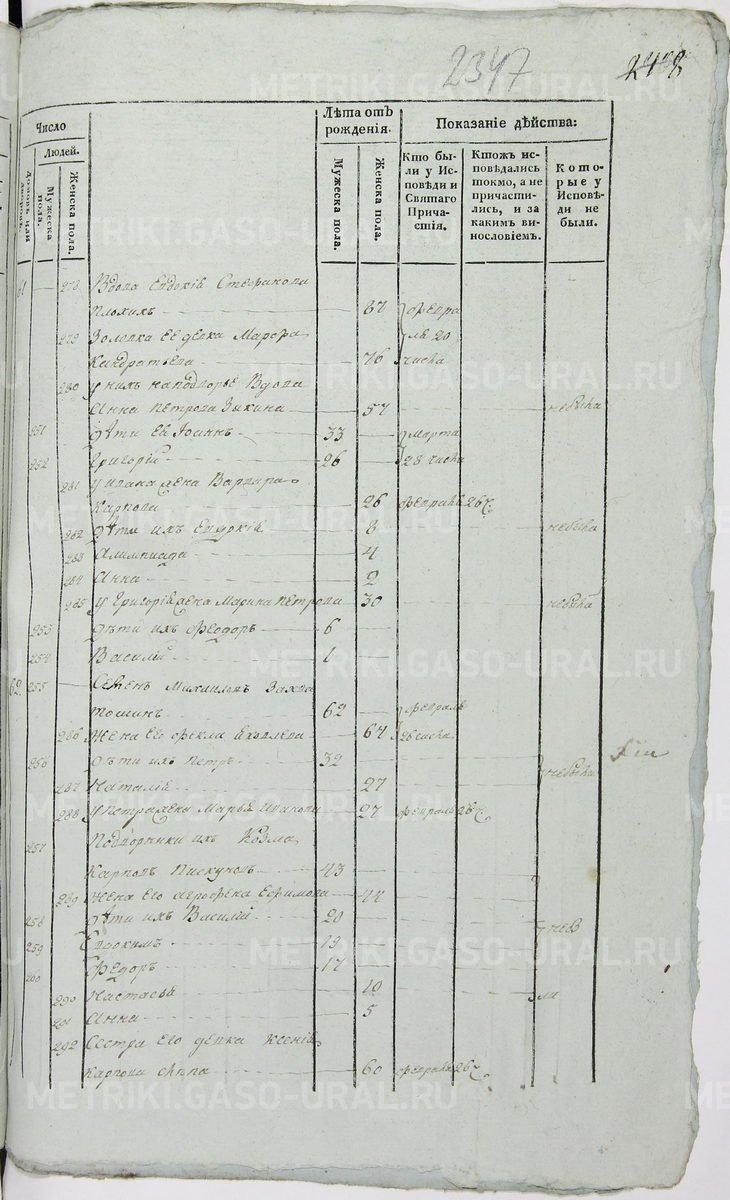 2347 2478
Число
Людей.
Домовъ или дворовъ.
Мужеска пола.
Женска пола.
Лѣта отъ рожденія.
Мужеска пола.
Женска пола.
Показаніе дѣйства:
Кто были у Исповѣди и Святаго Причастія.
Ктожъ исповѣдались токмо, а не причастились, и за какимъ винословіемъ.
Которые у Исповѣди не были.
61 278 Вдова Евдокія Стефанова
Плохихъ 87 февра
279 Золовка Ее девка Марфа ля 20
Кандратьева 76 числа
280 У нихъ наподворье Вдова
Анна Петрова Зыкина 57 небыла
251 Дѣти Ее Iоаннъ 33 Марта
252 Григорій 26 28 числа
281 У Ивана жена Варвара
Карпова 26 февраля 26 ч.
282 Дѣти ихъ Евдокія 8 небыла
283 Алимпиада 4
284 Анна 2
285 У Григорія жена Марина Петрова 30 небыла
253 Дѣти ихъ Феодоръ 6
254 Василій 1
62 255 Семенъ Михаиловъ
62 февраль
286 Жена Его Фекла Яковлева 64 26 числа
256 Дѣти ихъ Петръ 32 небыли
287 Наталія 27
288 У Петра жена Марья Иванова 27 февраль 26 ч.
257 Подворники ихъ Козма
Карповъ Пискуновъ 43
289 Жена Его Агрофена Ефимова 44
258 Дѣти ихъ Василій 20 небы
259 Евдокимъ 19
260 Федоръ 17
290 Настасья 10 ли
291 Анна 5
292 Сестра Его девка Ксенія
Карпова слѣпа 60 февраля 26 ч.
METRIKI.GASO-URAL.RU